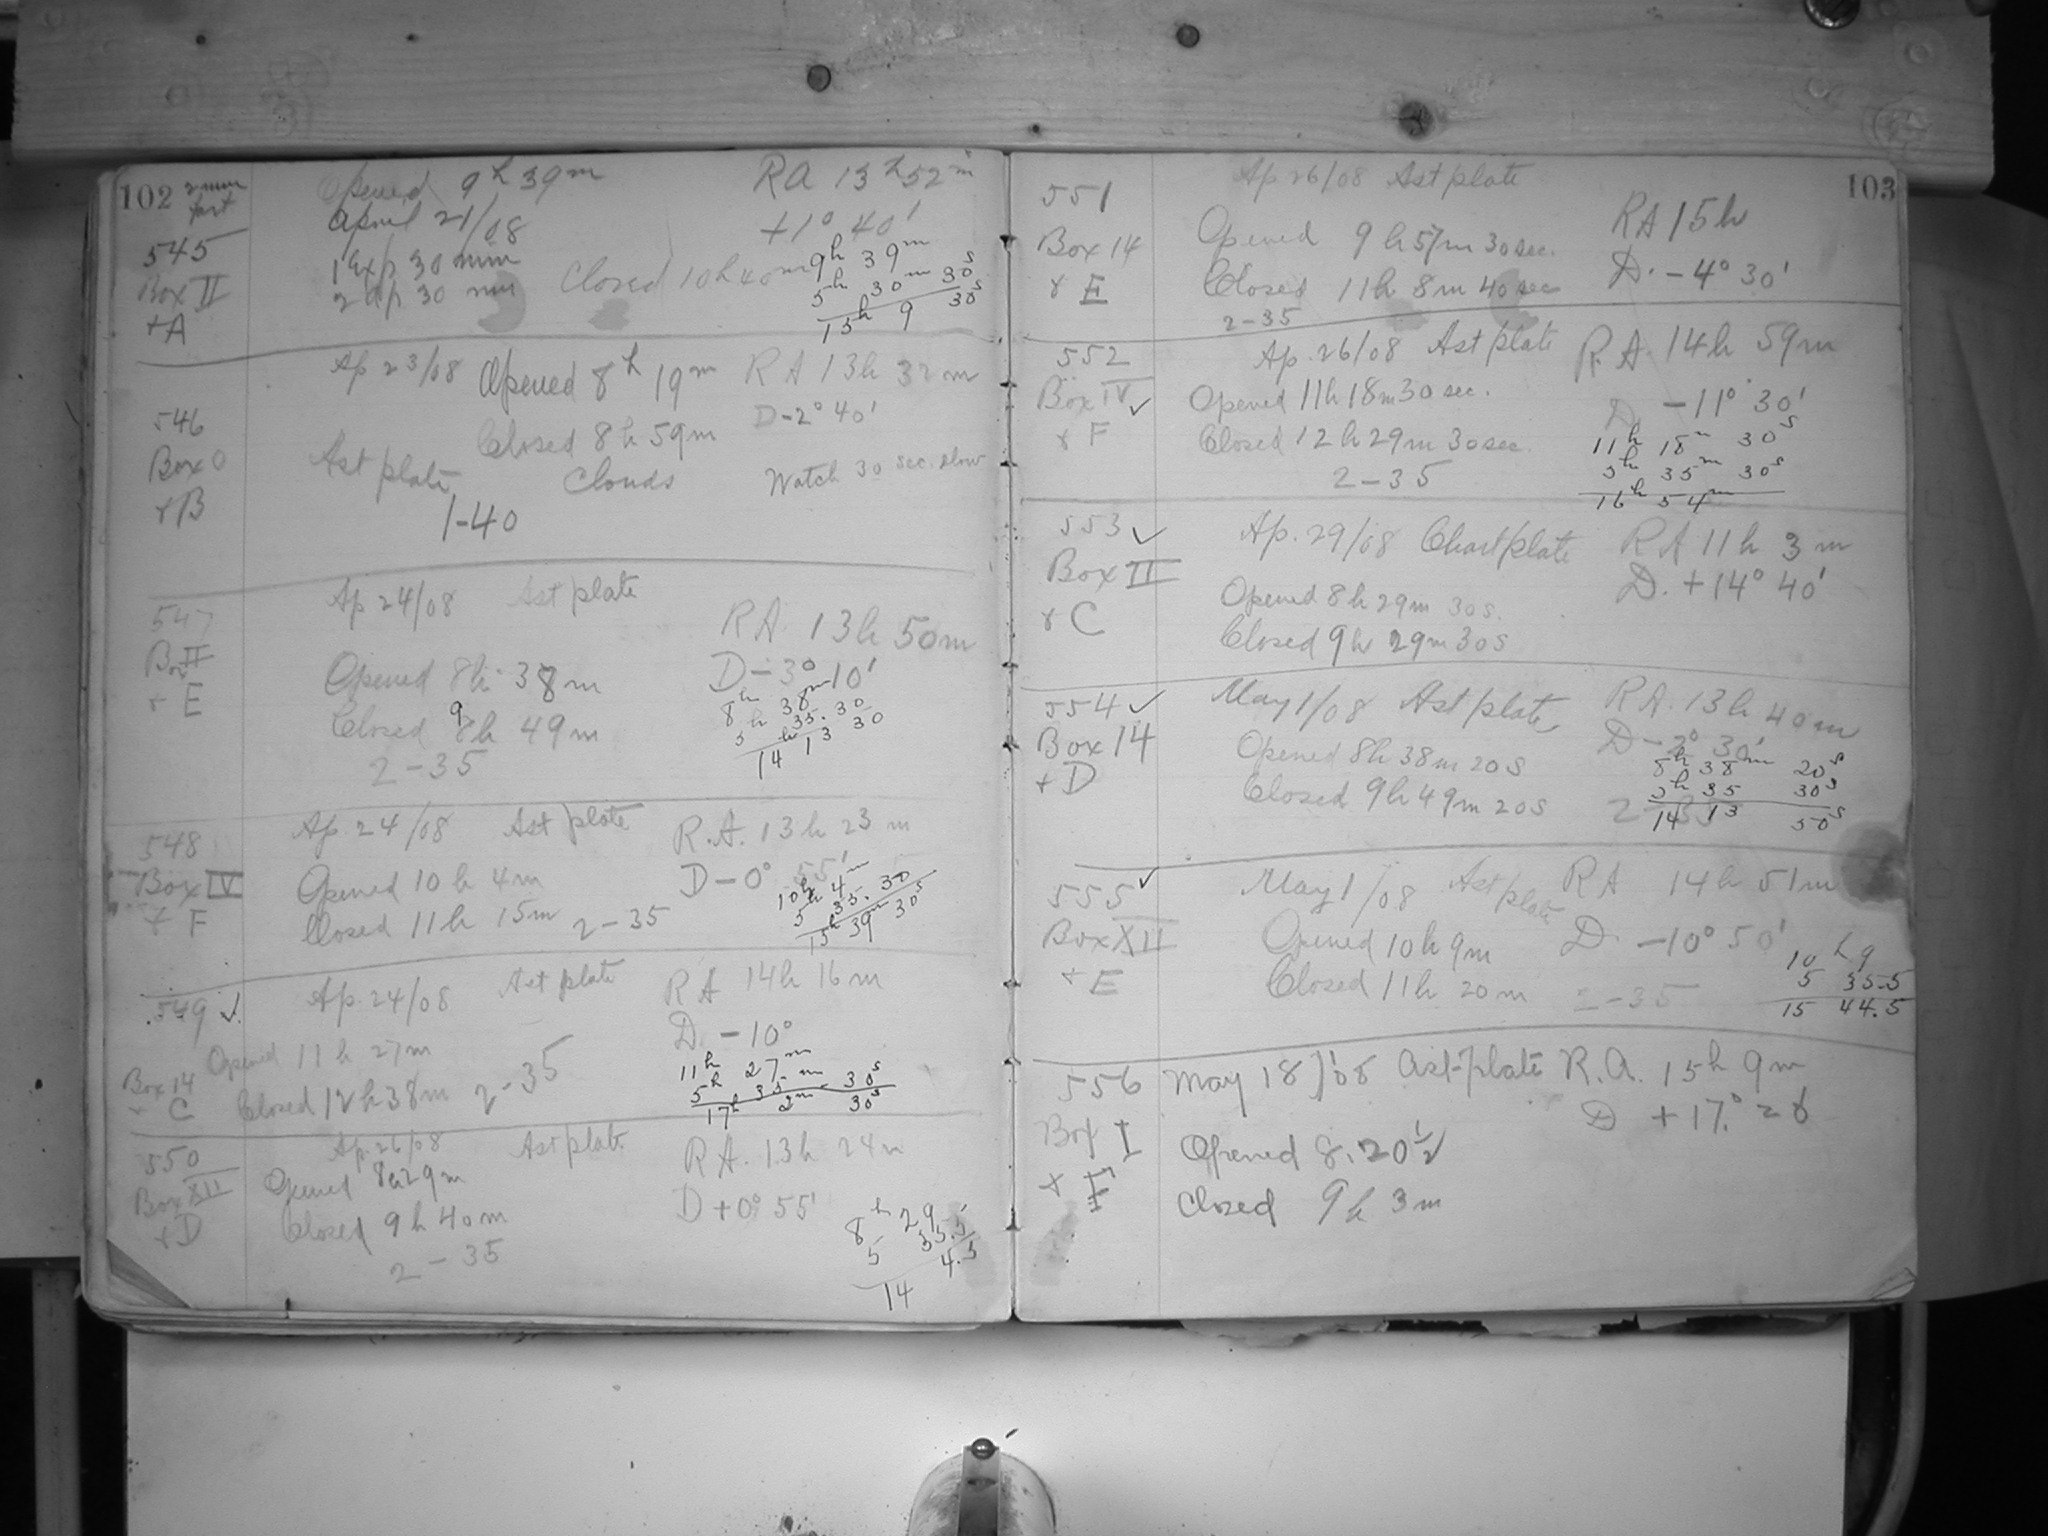 102 2 min fast
545
Box II
+A
Opened 9h 39m
April 21/08
1 Exp 30 min
2 exp 30 min
Closed 10h 40m
RA 13h 52m
+1° 40'
9h 39m
5h 30m 30s
15h 9 30s
546
Box 0
+B
Ap 23/08 Opened 8h 19m
Closed 8h 59m
Ast plate Clouds
1-40
RA 13h 32m
D-2° 40'
Watch 30 sec. slow
547
Box II
+ E
Ap 24/08 Ast plate
Opened 8h 38m
Closed 9h 49m
2-35
RA. 13h 50m
D-3° 10'
8h 38m
5h 35. 30
14h 13 30
548
Box IV
+ F
Ap. 24/08 Ast plate
Opened 10h 4m
Closed 11h 15m 2-35
R.A. 13h 23m
D-0° 55'
10h 4m
5h 35. 30
15h 39m 30s
549 ✓
Box 14
+ C
Ap. 24/08 Ast plate
Opened 11h 27m
Closed 12h 38m 2-35
RA 14h 16m
D. -10°
11h 27m
5h 35m 30s
17h 2m 30s
550
Box XII
+D
Ap. 26/08 Ast plate
Opened 8h 29m
Closed 9h 40m
2-35
RA. 13h 24m
D+0° 55'
8h 29
5 35.5
14 4.5
103
551
Box 14
+ E
Ap 26/08 Ast plate
Opened 9h 57m 30sec.
Closed 11h 8m 40sec
2-35
RA 15h
D. -4° 30'
552
Box IV ✓
+ F
Ap. 26/08 Ast plate
Opened 11h 18m 30sec.
Closed 12h 29m 30sec.
2-35
R.A. 14h 59m
D. -11° 30'
11h 18m 30s
5h 35m 30s
16h 54m
553 ✓
Box II
+ C
Ap. 29/08 Chart plate
Opened 8h 29m 30s.
Closed 9h 29m 30s
RA 11h 3m
D. +14° 40'
554 ✓
Box 14
+D
May 1/08 Ast plate
Opened 8h 38m 20s
Closed 9h 49m 20s
RA. 13h 40m
D-2° 30'
2-35
8h 38m 20s
5h 35 30s
14 13 50s
555 ✓
Box XII
+ E
May 1/08 Ast plate
Opened 10h 9m
Closed 11h 20m 2-35
RA 14h 51m
D. -10° 50'
10h 9
5 35.5
15 44.5
556
Box I
+ F
May 18/'08 Ast-plate R.A. 15h 9m
D +17.°
Opened 8.20½
Closed 9h 3m